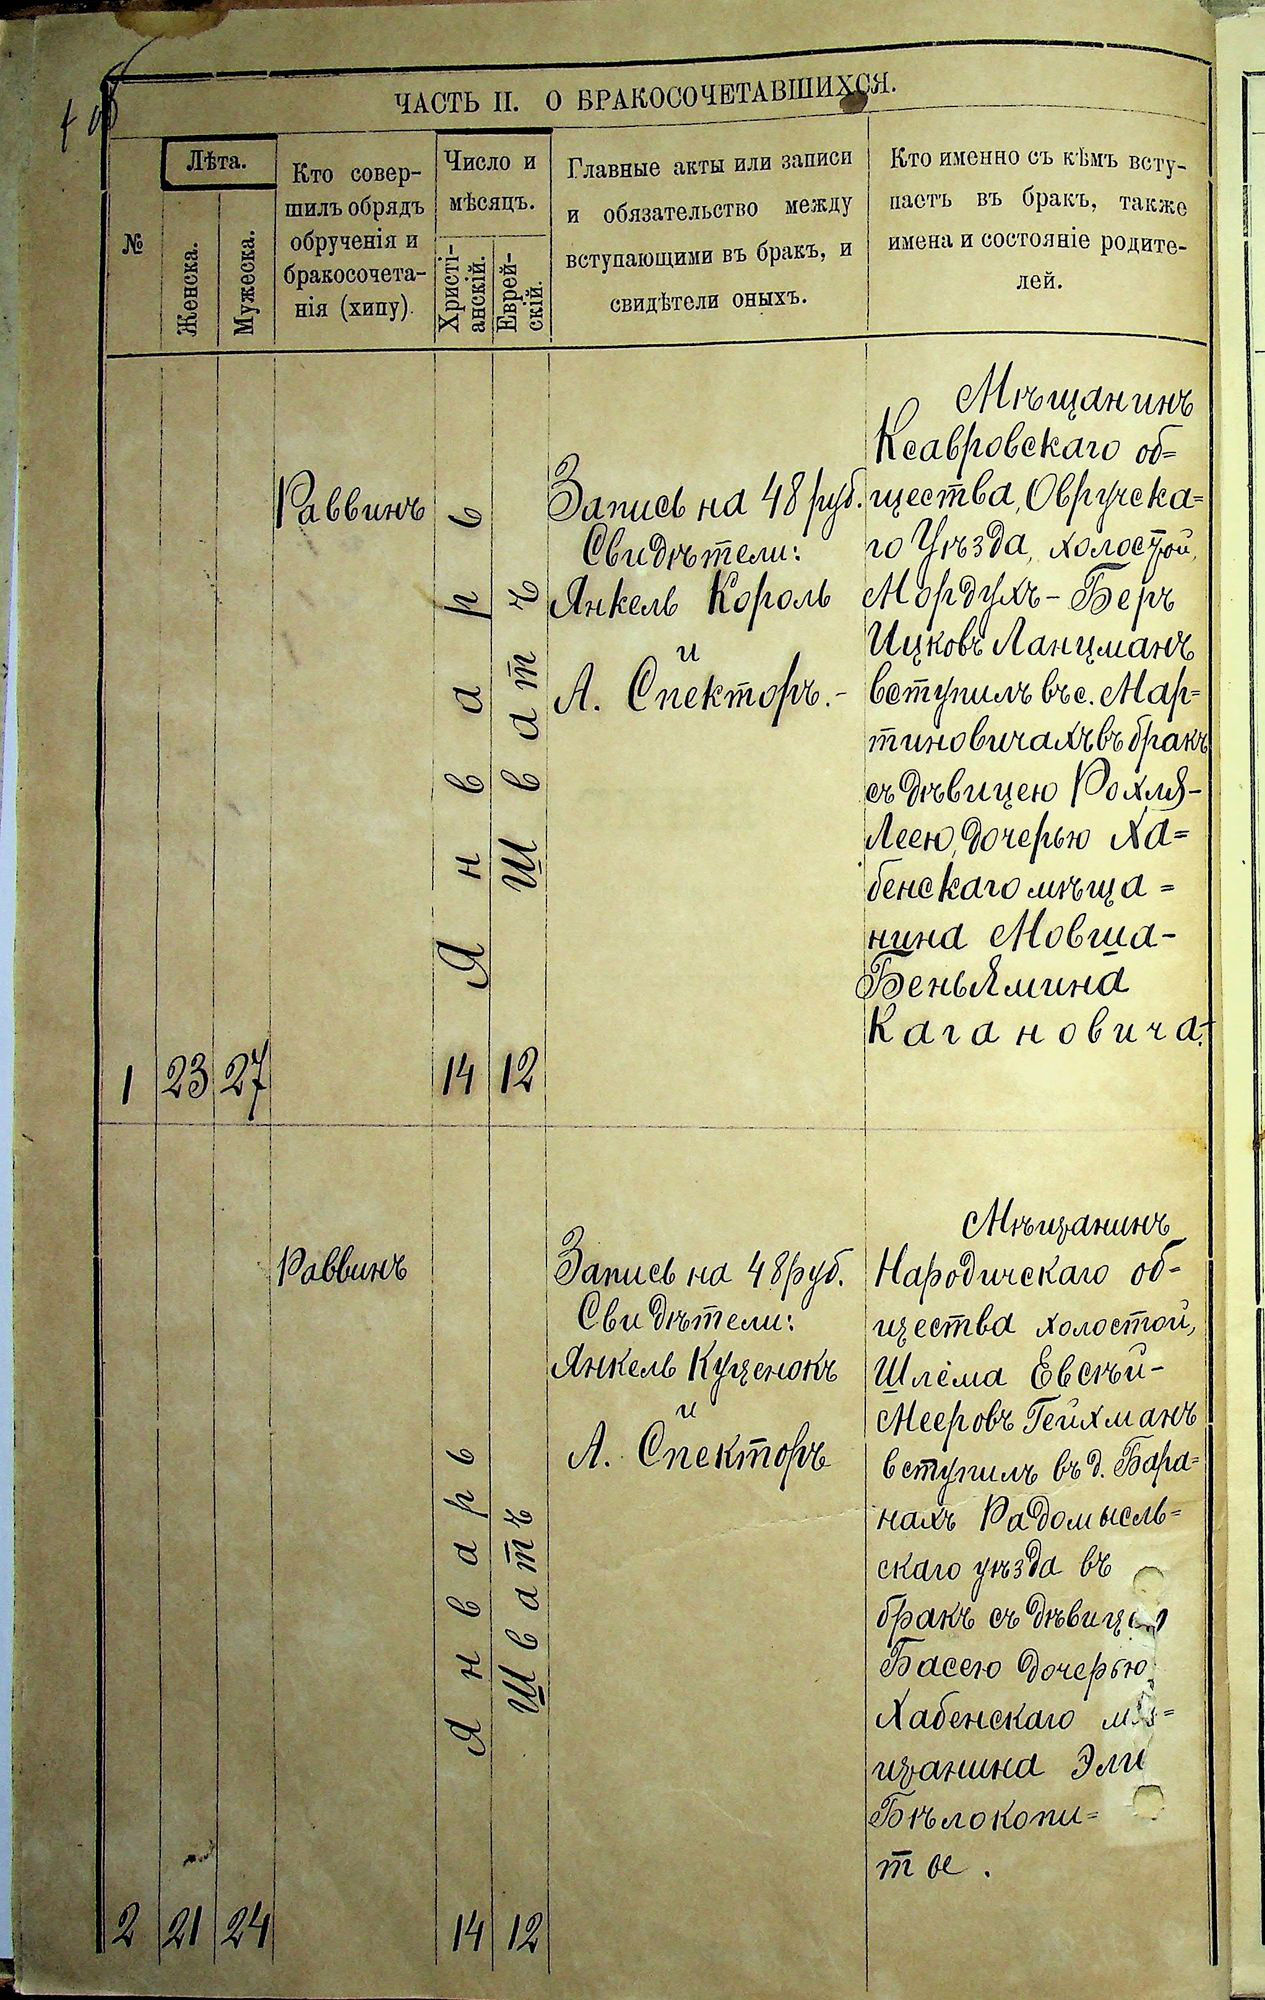 ЧАСТЬ II. О БРАКОСОЧЕТАВШИХСЯ.
№
Лѣта.
Женска.
Мужеска.
Кто совер-
шилъ обрядъ
обрученія и
бракосочета-
нія (хипу).
Число и
мѣсяцъ.
Христі-
анскій.
Еврей-
скій.
Главные акты или записи
и обязательство между
вступающими въ бракъ, и
свидѣтели оныхъ.
Кто именно съ кѣмъ всту-
паетъ въ бракъ, также
имена и состояніе родите-
лей.
1
23
27
Раввинъ
Январь
14
Шватъ
12
Запись на 48 руб.
Свидѣтели:
Янкель Король
и
А. Спекторъ.-
Мѣщанинъ
Ксавровскаго об=
щества, Овручска=
го Уѣзда, холостой,
Мордухъ-Беръ
Ицковъ Ланцманъ
вступилъ въ с. Мар=
тиновичахъ въ бракъ
съ дѣвицею Рохля-
Леею, дочерью Ха=
бенскаго мѣща=
нина Мовша-
Беньямина
Кагановича.-
2
21
24
Раввинъ
Январь
14
Шватъ
12
Запись на 48 руб.
Свидѣтели:
Янкель Куценокъ
и
А. Спекторъ
Мѣщанинъ
Народичскаго об-
щества холостой,
Шлёма Евсѣй-
Мееровъ Гейхманъ
вступилъ въ д. Бара=
нахъ Радомысль=
скаго уѣзда въ
бракъ съ дѣвицею
Басею дочерью
Хабенскаго мѣ=
щанина Эли
Бѣлокопи=
тые.